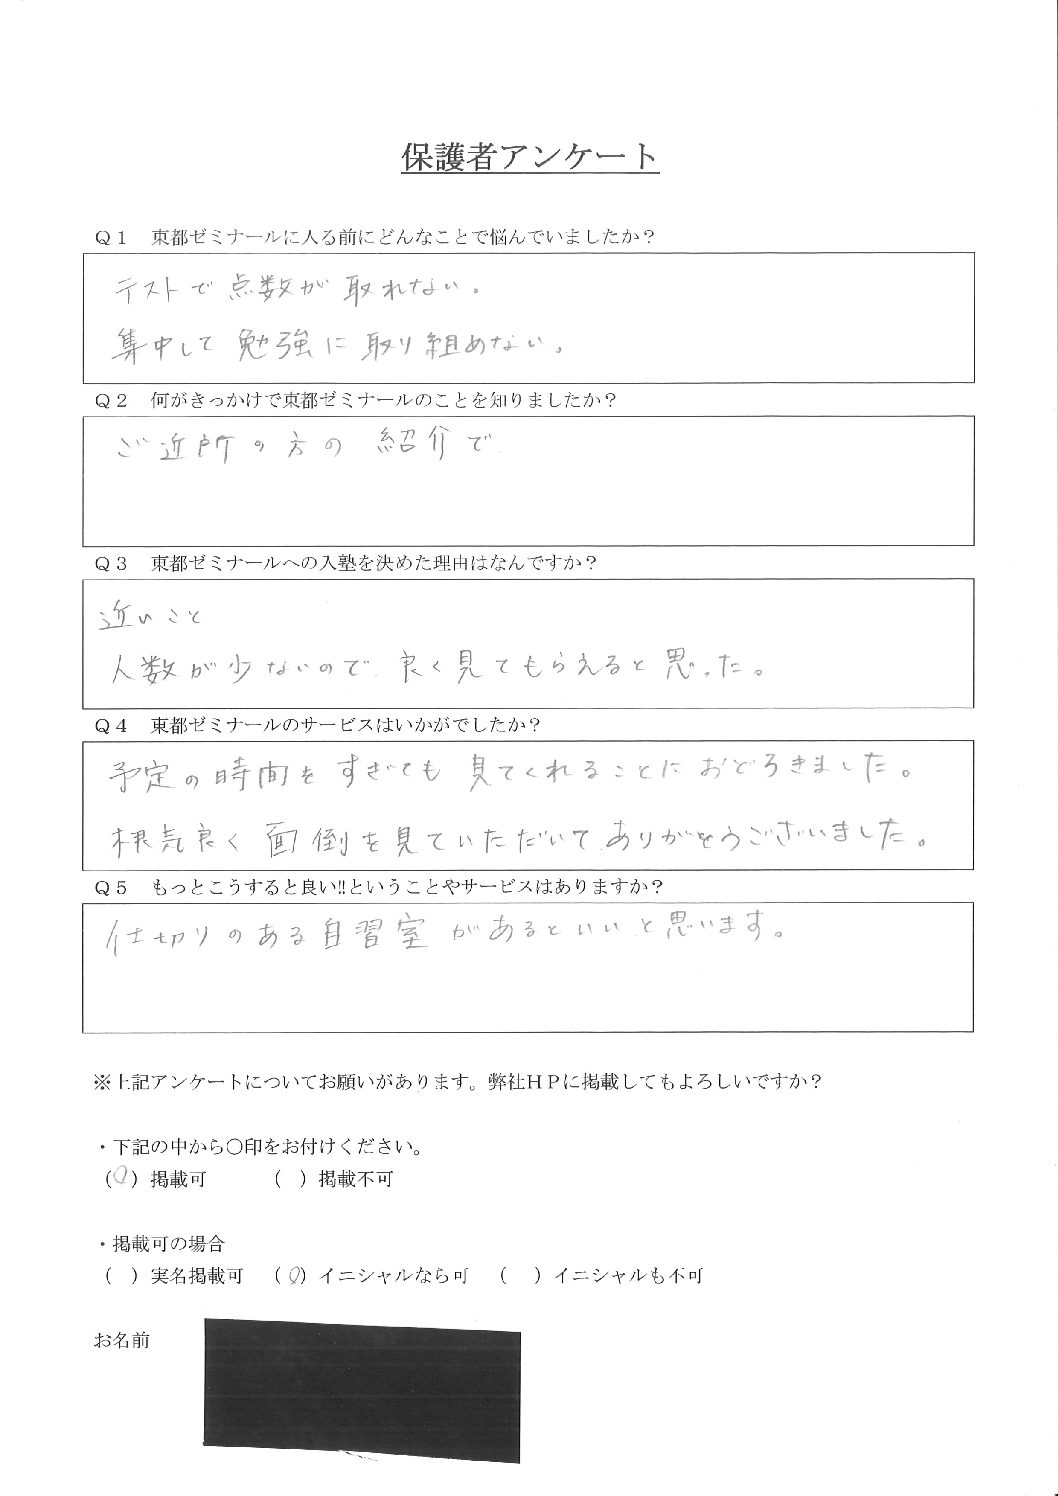 保護者アンケート
Q1 東都ゼミナールに入る前にどんなことで悩んでいましたか？
テストで点数が取れない。
集中して勉強に取り組めない。
Q2 何がきっかけで東都ゼミナールのことを知りましたか？
ご近所の方の紹介で
Q3 東都ゼミナールへの入塾を決めた理由はなんですか？
近いこと
人数が少ないので良く見てもらえると思った。
Q4 東都ゼミナールのサービスはいかがでしたか？
予定の時間をすぎても見てくれることにおどろきました。
根気良く面倒を見ていただいてありがとうございました。
Q5 もっとこうすると良い!!ということやサービスはありますか？
仕切りのある自習室があるといいと思います。
※上記アンケートについてお願いがあります。弊社HPに掲載してもよろしいですか？
・下記の中から〇印をお付けください。
（〇）掲載可 （ ）掲載不可
・掲載可の場合
（ ）実名掲載可 （〇）イニシャルなら可 （ ）イニシャルも不可
お名前